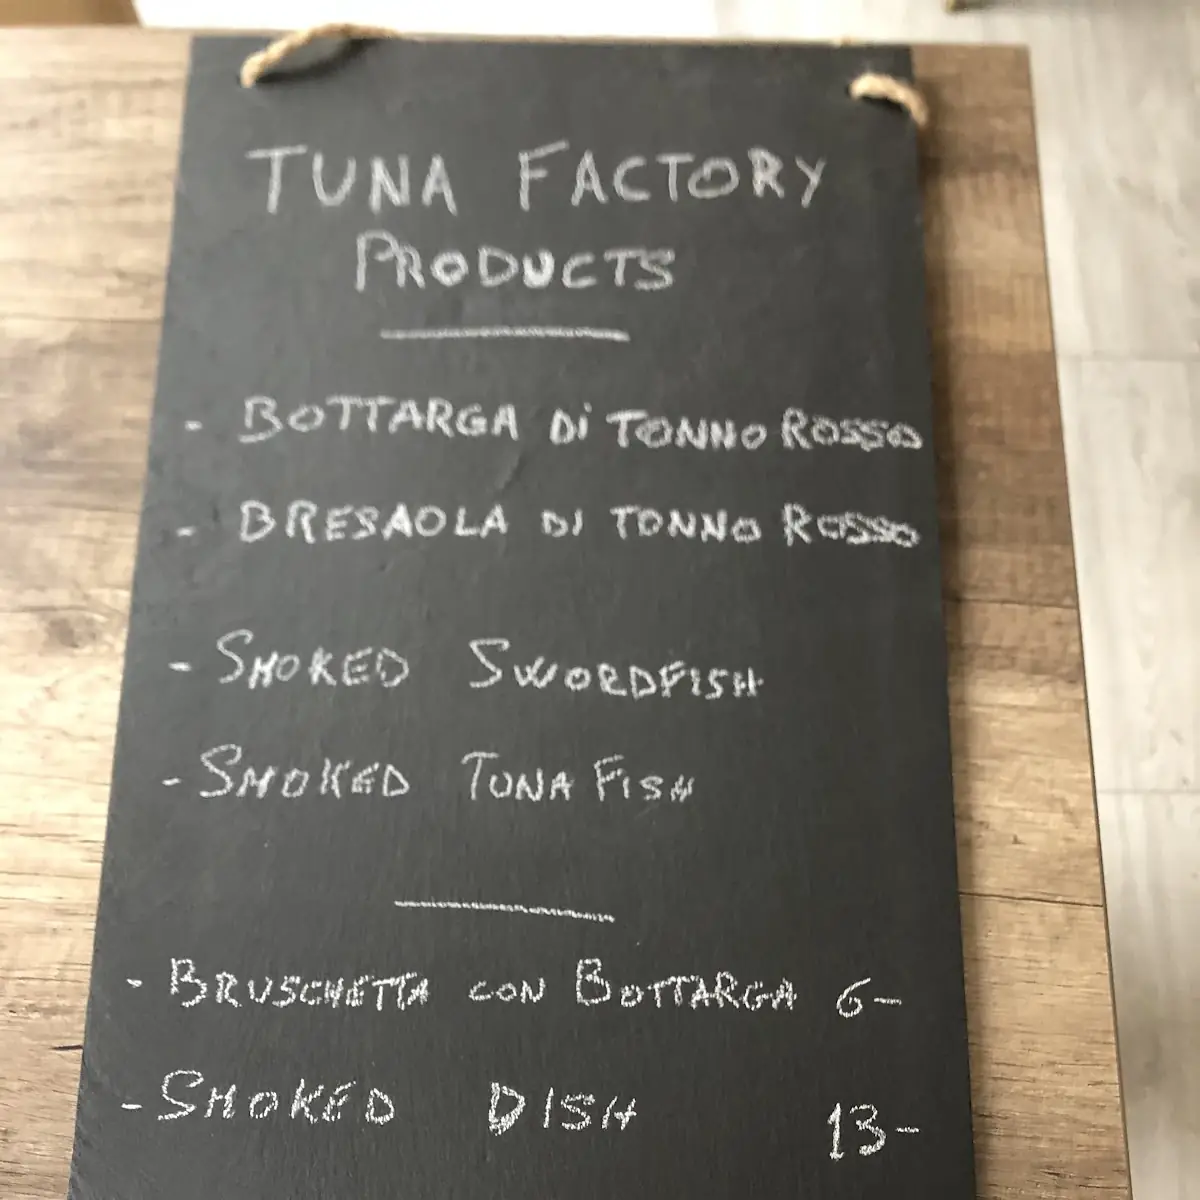 TUNA FACTORY
PRODUCTS
- BOTTARGA Di TONNO ROSSO
- BRESAOLA DI TONNO ROSSO
- SMOKED SWORDFISH
- SMOKED TUNA FISH
- BRUSCHETTA CON BOTTARGA 6-
- SMOKED DISH 13-